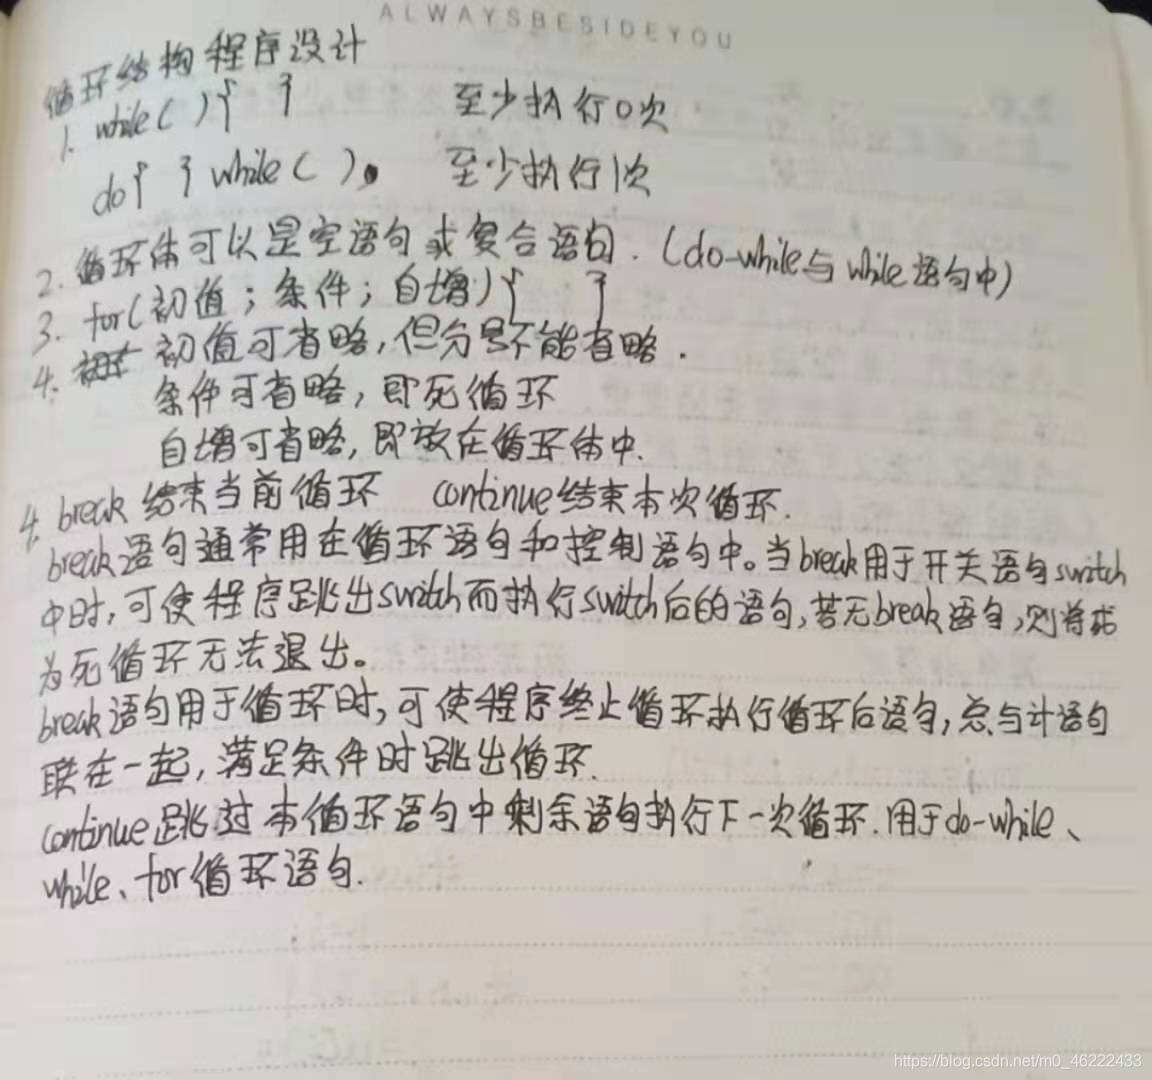 ALWAYSBESIDEYOU
循环结构程序设计
1. while( ){ } 至少执行0次
do{ } while( ); 至少执行1次
2. 循环体可以是空语句或复合语句.(do-while与while语句中)
3. for(初值;条件;自增){ }
4. 初值可省略,但分号不能省略.
条件可省略,即死循环
自增可省略,即放在循环体中.
4. break 结束当前循环 continue结束本次循环.
break语句通常用在循环语句和控制语句中。当break用于开关语句switch
中时,可使程序跳出switch而执行switch后的语句,若无break语句,则将成
为死循环无法退出。
break语句用于循环时,可使程序终止循环执行循环后语句,总与计语句
联在一起,满足条件时跳出循环.
continue跳过本循环语句中剩余语句执行下一次循环.用于do-while、
while、for循环语句.
https://blog.csdn.net/m0_46222433